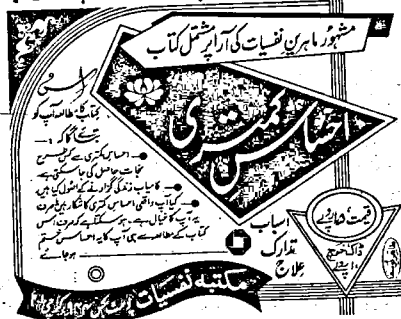 مشہور ماہرین نفسیات کی آرا پر مشتمل کتاب
احساس کمتری
اس
کتاب کا مطالعہ آپ کو
بتائے گا کہ :—
احساس کمتری سے کس طرح
نجات حاصل کی جا سکتی ہے
کامیاب زندگی گزارنے کے اصول کیا ہیں
کیا آپ واقعی احساس کمتری کا شکار ہیں یا صرف
یہ آپ کا خیال ہے۔ ہو سکتا ہے کہ صرف اس
کتاب کے مطالعہ سے ہی آپ کا یہ احساس ختم
ہو جائے
اسباب
تدارک
علاج
قیمت
ڈاک خرچ
مکتبہ نفسیات پوسٹ بکس کراچی